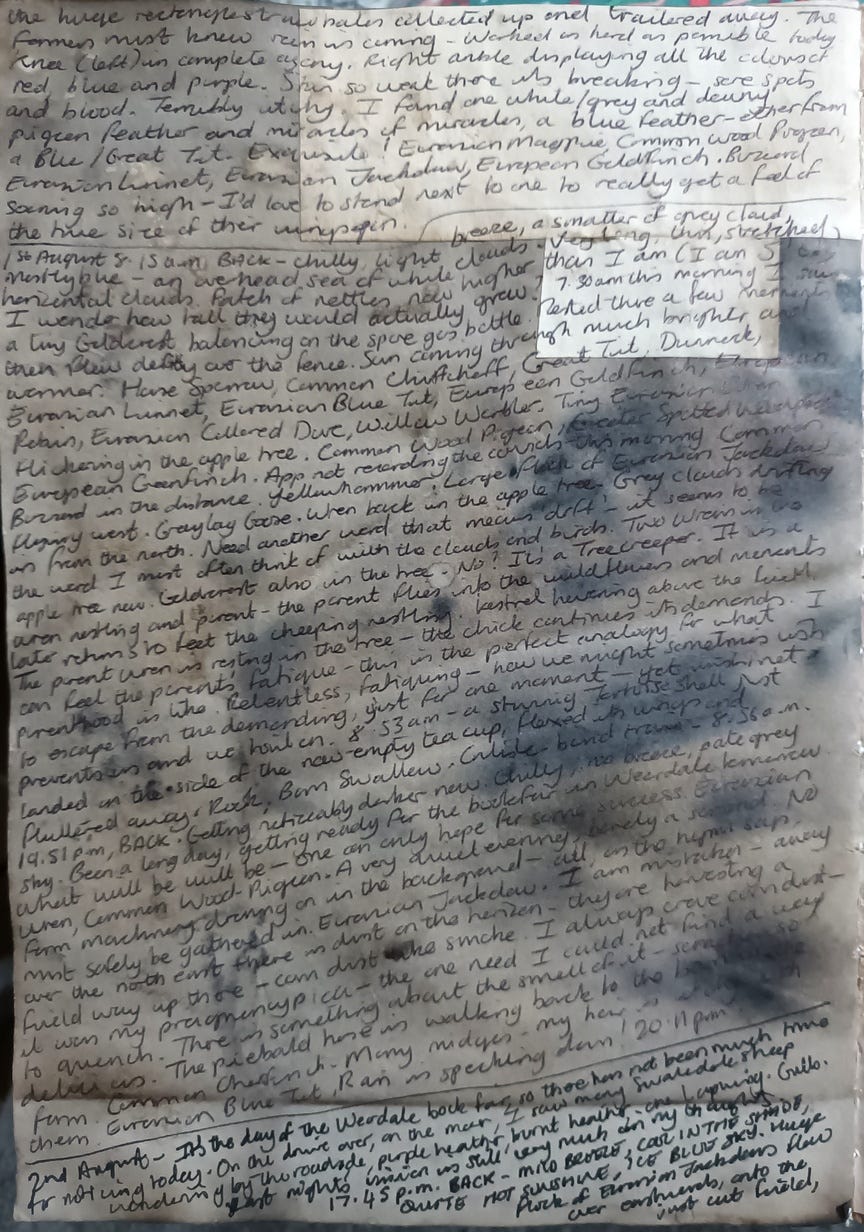 the huge rectangle straw bales collected up and trailered away. The
farmers must know rain is coming - Worked as hard as possible today
Knee (left) in complete agony. Right ankle displaying all the colours of
red, blue and purple. Skin so weak there its breaking - sore spots
and blood. Terribly itchy. I found one white/grey and downy
pigeon feather and miracles of miracles, a blue feather - either from
a Blue/Great Tit. Exquisite! Eurasian Magpie, Common Wood Pigeon,
Eurasian Linnet, Eurasian Jackdaw, European Goldfinch. Buzzard
soaring so high - I'd love to stand next to one to really get a feel of
the true size of their wingspan.
breeze, a smatter of grey cloud,
1st August 8.15am BACK - chilly, light clouds - very long, thin, stretched
mostly blue - an overhead sea of white higher than I am (I am 5
horizontal clouds. Patch of nettles now 7.30am this morning I saw
I wonder how tall they would actually grow? rested there a few moments
a tiny Goldcrest balancing on the spare gas bottle.
then flew deftly over the fence. Sun coming through much brighter and
warmer. House Sparrow, Common Chiffchaff, Great Tit, Dunnock,
Eurasian Linnet, Eurasian Blue Tit, European Goldfinch, European
Robin, Eurasian Collared Dove, Willow Warbler. Tiny Eurasian Wren
flickering in the apple tree. Common Wood Pigeon, Greater Spotted Woodpecker
European Greenfinch. App not recording the corvids this morning. Common
Buzzard in the distance. Yellowhammer! Large flock of Eurasian Jackdaw
flying west. Greylag Goose. Wren back in the apple tree. Grey clouds drifting
in from the north. Need another word that means drift! - it seems to be
the word I most often think of with the clouds and birds. Two Wrens in the
apple tree now. Goldcrest also in the tree - No! It's a Treecreeper. It is a
wren nestling and parent - the parent flies into the wildflowers and moments
later returns to feet the cheeping nestling. Kestrel hovering above the field.
The parent wren is resting in the tree - the chick continues its demands. I
can feel the parents' fatigue - this is the perfect analogy for what
parenthood is like. Relentless, fatiguing - how we might sometimes wish
to escape from the demanding, just for one moment - yet instinct
prevents us and we hold on. 8.53am - a stunning Tortoiseshell just
landed on the side of the now-empty tea cup, flexed its wings and
fluttered away. Rook, Barn Swallow. Carlisle-bound train - 8.56a.m.
19.51p.m, BACK. Getting noticeably darker now. Chilly, no breeze, pale grey
sky. Been a long day, getting ready for the bookfair in Weardale tomorrow.
What will be will be - one can only hope for some success. Eurasian
Wren, Common Wood-Pigeon. A very quiet evening, barely a sound. No
farm machinery droning on in the background - all, as the hymn says,
must safely be gathered in. Eurasian Jackdaw. I am mistaken - away
over the north east there is dust on the horizon - they are harvesting a
field way up there - corn dust like smoke. I always crave corn dust -
it was my pregnancy pica - the one need I could not find a way
to quench. There is something about the smell of it - so
delicious. The piebald horse is walking back to the
farm. Common Chaffinch. Many midges - my hair is
them. Eurasian Blue Tit. Rain is specking down! 20.11pm
2nd August - It's the day of the Weardale book fair, so there has not been much time
for noticing today. On the drive over, on the moor, I saw many Swaledale sheep
wandering by the roadside, purple heather, burnt heather - one Lapwing. Gulls.
Last night's is still very much on my thoughts.
17.45 p.m. BACK - MILD BREEZE, COOL IN THE SHADE,
QUITE HOT SUNSHINE, ICE BLUE SKY. Huge
flock of Eurasian Jackdaws flew
over eastwards, onto the
just cut field,